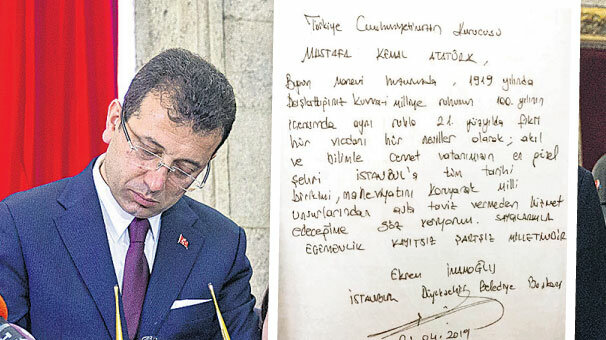 Türkiye Cumhuriyetinin Kurucusu
MUSTAFA KEMAL ATATÜRK,
Bugün Manevi huzurunuzda, 1919 yılında
başlattığınız kuvva-i milliye ruhunun 100. yılının
içerisinde aynı ruhla 21. yüzyılda fikri
hür vicdanı hür nesiller olarak; akıl
ve bilimle cennet vatanımızın en güzel
şehri İSTANBUL'a tüm tarihi
birikimi, maneviyatını koruyarak milli
unsurlarından asla taviz vermeden hizmet
edeceğime söz veriyorum. SAYGILARIMLA
EGEMENLİK KAYITSIZ ŞARTSIZ MİLLETİNDİR
Ekrem İMAMOĞLU
İSTANBUL Büyükşehir Belediye Başkanı
04.2019